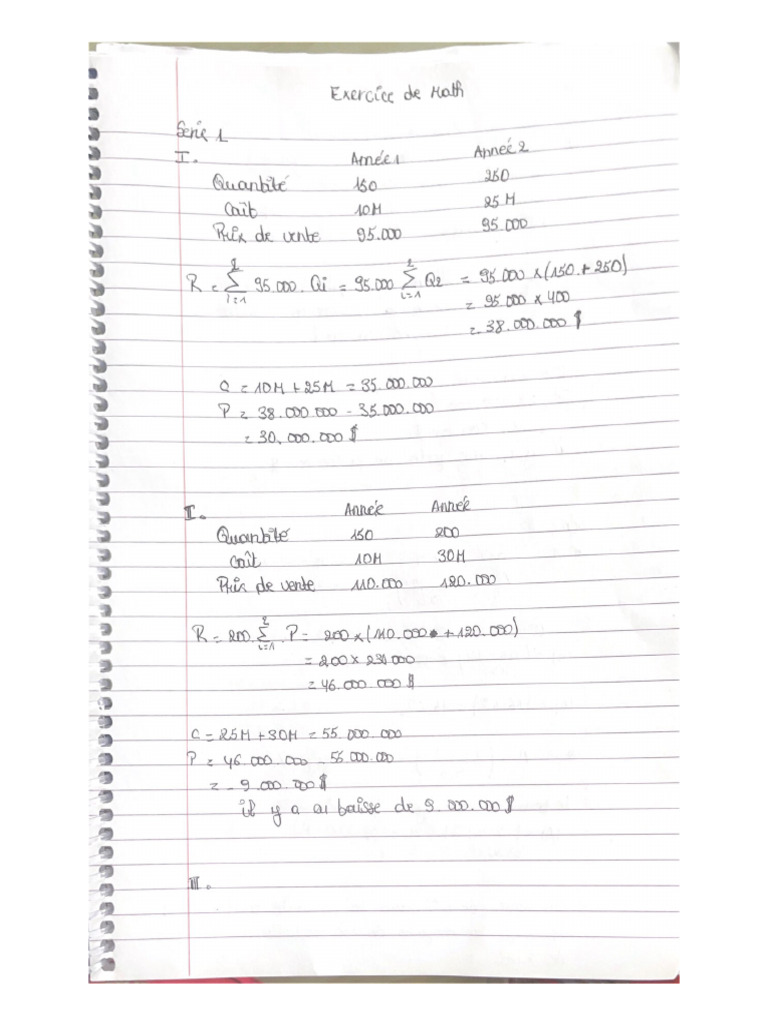 Exercice de Math
Serie 1
I. Année 1 Année 2
Quantité 150 250
Coût 10M 25M
Prix de vente 95.000 95.000
R = 2∑i=1 95.000. Qi = 95.000 2∑i=1 Q2 = 95.000 x (150 + 250)
= 95.000 x 400
= 38.000.000 $
C = 10M + 25M = 35.000.000
P = 38.000.000 - 35.000.000
= 30.000.000 $
I. Année Année
Quantité 150 200
Coût 10M 30M
Prix de vente 110.000 120.000
R = 200. 2∑i=1 .P = 200 x (110.000 + 120.000)
= 200 x 230.000
= 46.000.000 $
C = 25M + 30M = 55.000.000
P = 46.000.000 - 55.000.000
= - 9.000.000 $
il y a baisse de 9.000.000 $
III.